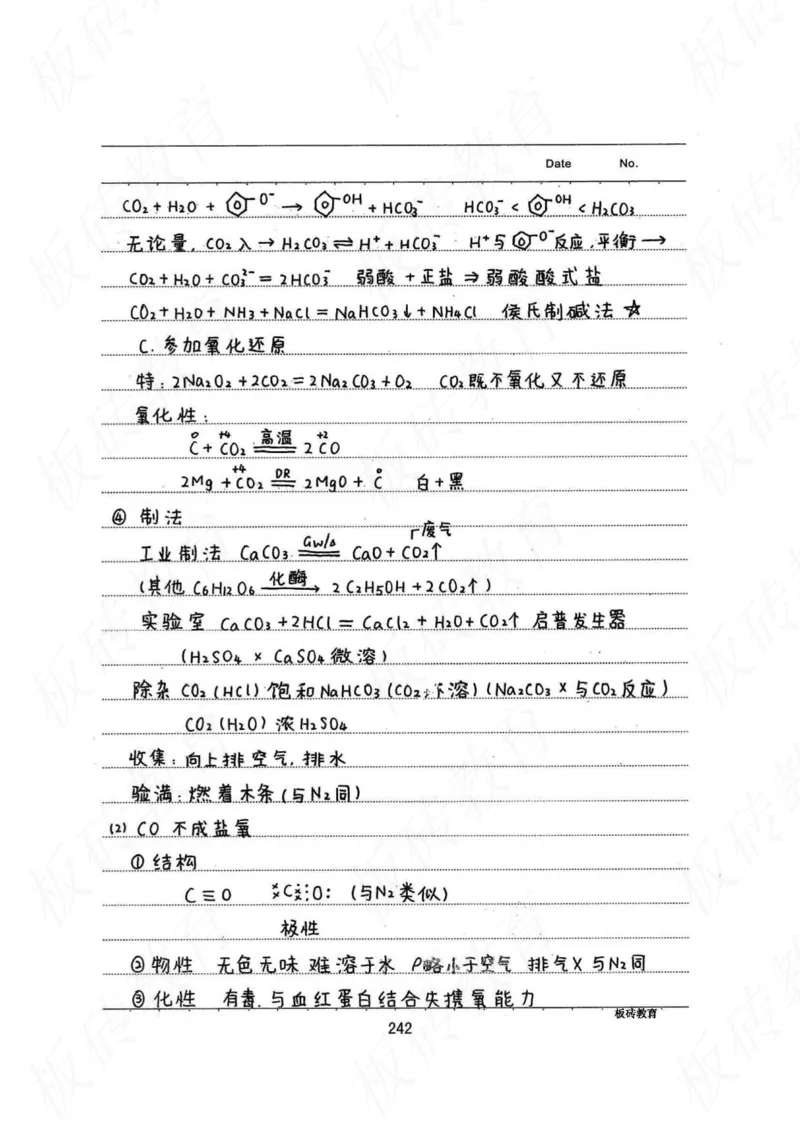 Date No.
CO₂ + H₂O + ⌬-O⁻ → ⌬-OH + HCO₃⁻ HCO₃⁻ < ⌬-OH < H₂CO₃
无论量, CO₂入 → H₂CO₃ ⇌ H⁺ + HCO₃⁻ H⁺与⌬-O⁻反应,平衡→
CO₂ + H₂O + CO₃²⁻ = 2HCO₃⁻ 弱酸 + 正盐 ⇒ 弱酸酸式盐
CO₂ + H₂O + NH₃ + NaCl = NaHCO₃↓ + NH₄Cl 侯氏制碱法 ☆
C. 参加氧化还原
特: 2Na₂O₂ + 2CO₂ = 2Na₂CO₃ + O₂ CO₂既不氧化又不还原
氧化性:
0 +4 高温 +2
C + CO₂ == 2CO
+4 点燃 0
2Mg + CO₂ == 2MgO + C 白+黑
④ 制法
┌废气
工业制法 CaCO₃ =Gw/Δ= CaO + CO₂↑
(其他 C₆H₁₂O₆ —化酶→ 2C₂H₅OH + 2CO₂↑)
实验室 CaCO₃ + 2HCl = CaCl₂ + H₂O + CO₂↑ 启普发生器
(H₂SO₄ × CaSO₄微溶)
除杂 CO₂(HCl)饱和NaHCO₃(CO₂不溶)(Na₂CO₃ × 与CO₂反应)
CO₂(H₂O)浓H₂SO₄
收集: 向上排空气, 排水
验满: 燃着木条(与N₂同)
(2) CO 不成盐氧
① 结构
C≡O ⁝C⁝⁝O: (与N₂类似)
极性
② 物性 无色无味 难溶于水 ρ略小于空气 排气× 与N₂同
③ 化性 有毒. 与血红蛋白结合失携氧能力
板砖教育
242